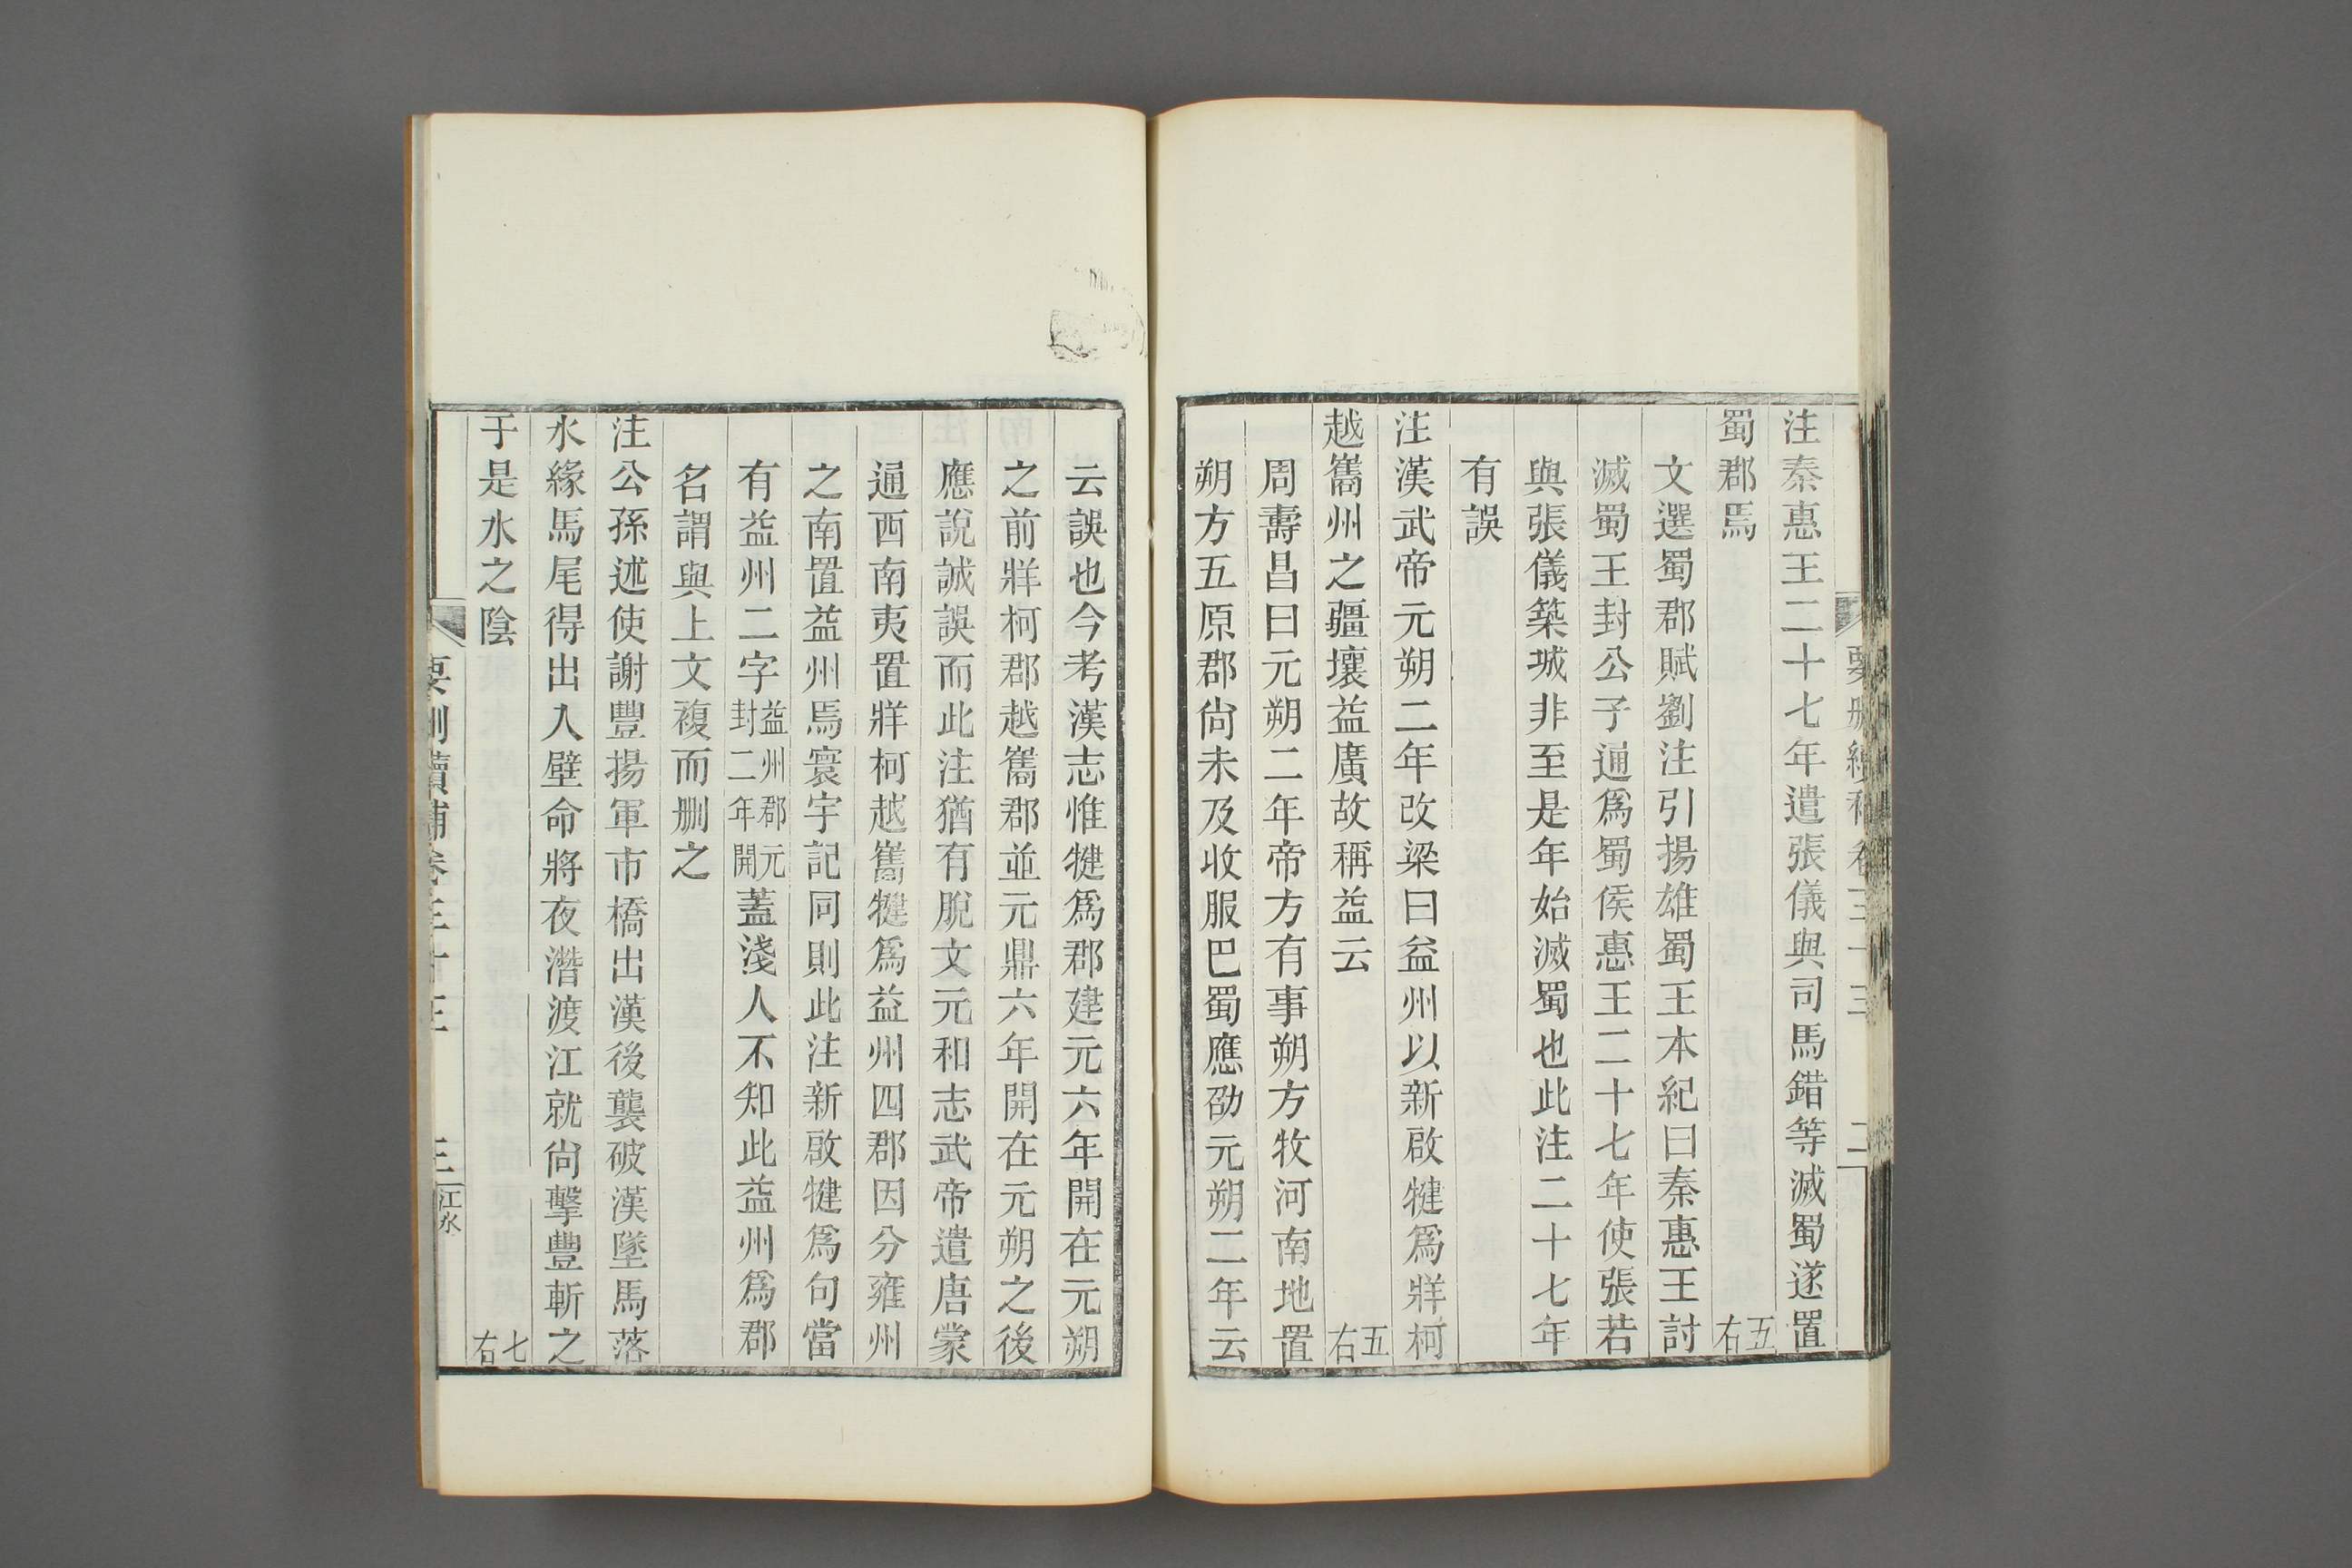 注秦惠王二十七年遣張儀與司馬錯等滅蜀遂置
蜀郡焉 五右
文選蜀郡賦劉注引揚雄蜀王本紀曰秦惠王討
滅蜀王封公子通爲蜀侯惠王二十七年使張若
與張儀築城非至是年始滅蜀也此注二十七年
有誤
注漢武帝元朔二年改梁曰益州以新啟犍爲牂柯
越巂州之疆壤益廣故稱益云 五右
周壽昌曰元朔二年帝方有事朔方牧河南地置
朔方五原郡尙未及收服巴蜀應劭元朔二年云
云誤也今考漢志惟犍爲郡建元六年開在元朔
之前牂柯郡越巂郡並元鼎六年開在元朔之後
應說誠誤而此注猶有脫文元和志武帝遣唐蒙
通西南夷置牂柯越巂犍爲益州四郡因分雍州
之南置益州焉寰宇記同則此注新啟犍爲句當
有益州二字益州郡元封二年開蓋淺人不知此益州爲郡
名謂與上文複而删之
注公孫述使謝豐揚軍市橋出漢後襲破漢墜馬落
水緣馬尾得出入壁命將夜潛渡江就尙擊豐斬之
于是水之陰 七右
要刪續補卷三十三 三 江水